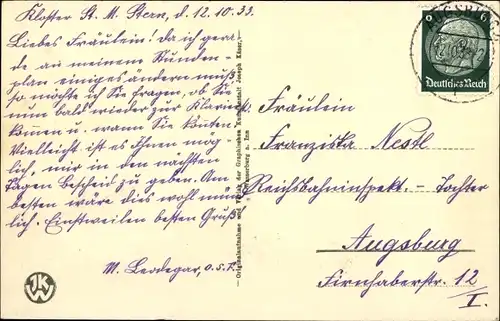 Kloster St. M. Stern, d. 12.10.33.
Liebes Fräulein! Da ich gera-
de an meinem Stunden-
plan einiges ändern muß,
so möchte ich Sie fragen, ob Sie
nun bald wieder zur Klavier
können u. wann Sie könten.
Vielleicht ist es Ihnen mög-
lich, mir in den nächsten
Tagen Bescheid zu geben. Am
besten wäre dies wohl münd-
lich. Einstweilen besten Gruß!
M. Leodegar, O.S.F.
JKW
Originalaufnahme und Druck der Graphischen Kunstanstalt Joseph
a. Inn
AUGSBURG
6
Deutsches Reich
Fräulein
Franziska Nestl
Reichsbahninspekt.-Tochter
Augsburg
Firnhaberstr. 12
I.